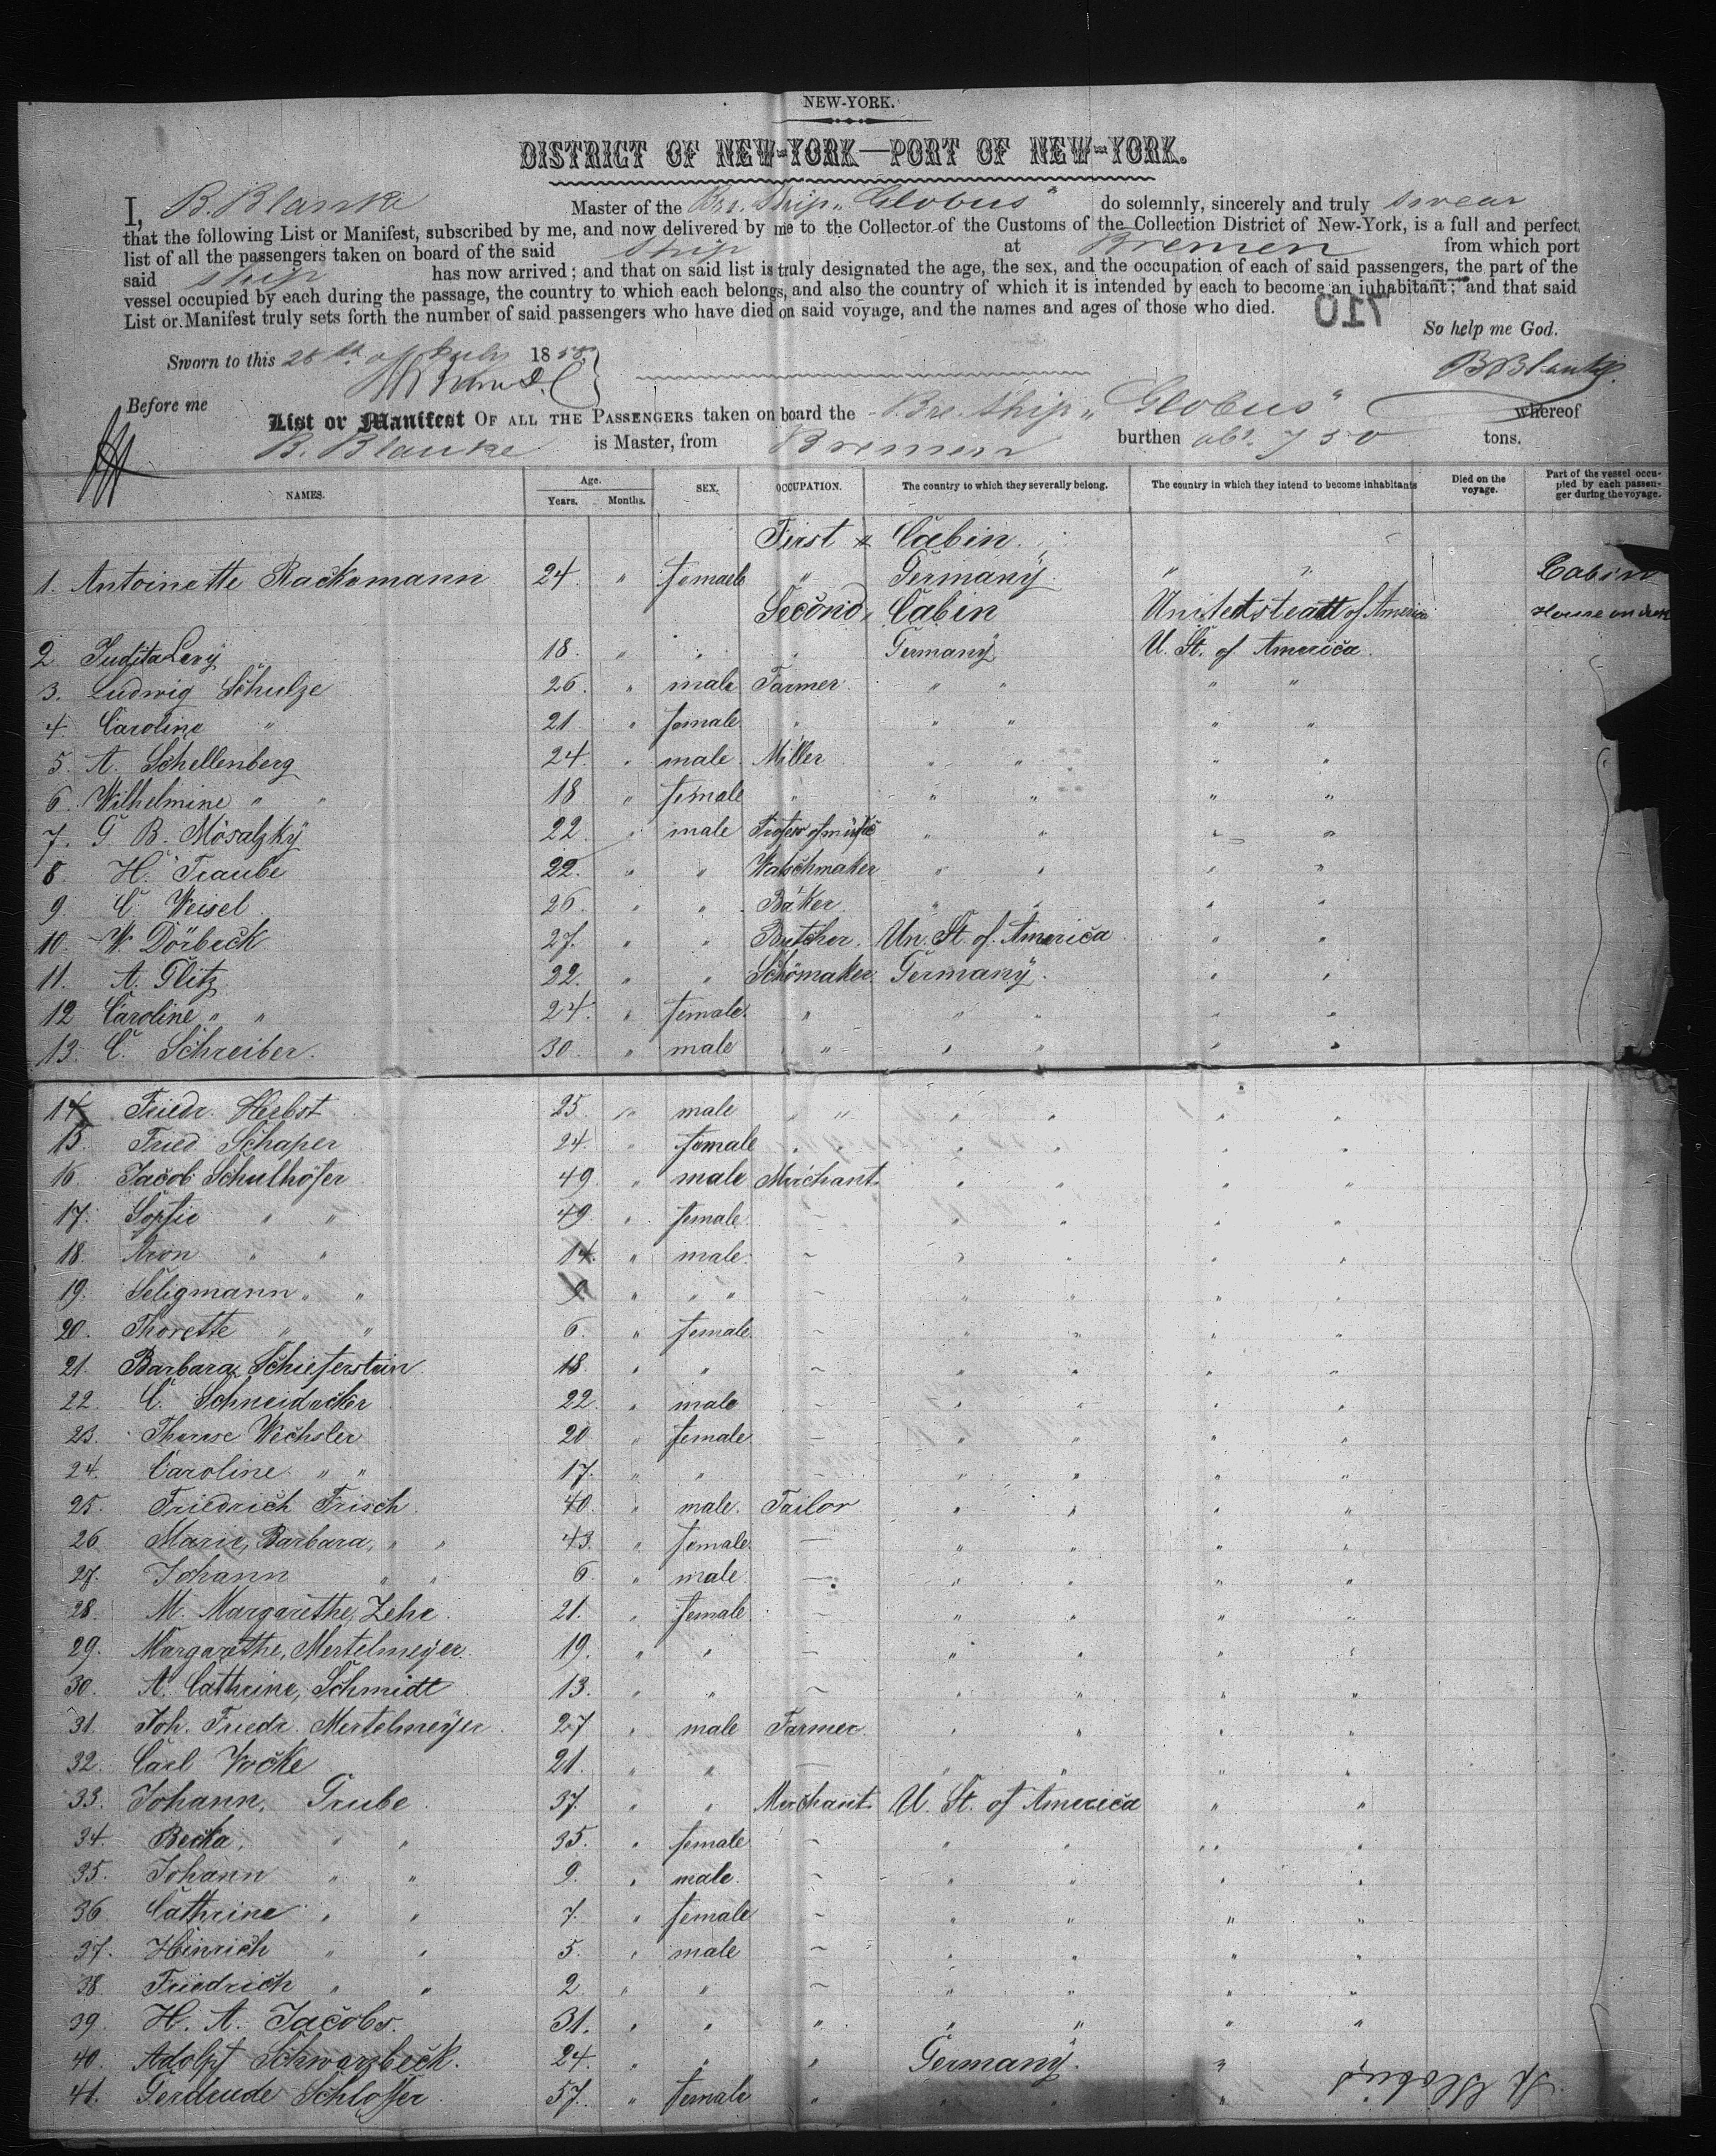 NEW-YORK.
DISTRICT OF NEW-YORK—PORT OF NEW-YORK.
I, B. Blanke Master of the Bre. Ship „Globus" do solemnly, sincerely and truly swear
that the following List or Manifest, subscribed by me, and now delivered by me to the Collector of the Customs of the Collection District of New-York, is a full and perfect
list of all the passengers taken on board of the said Ship at Bremen from which port
said ship has now arrived; and that on said list is truly designated the age, the sex, and the occupation of each of said passengers, the part of the
vessel occupied by each during the passage, the country to which each belongs, and also the country of which it is intended by each to become an inhabitant; and that said
List or Manifest truly sets forth the number of said passengers who have died on said voyage, and the names and ages of those who died.
710
So help me God.
Sworn to this 28th of July 1858
B Blanke
Before me
List or Manifest OF ALL THE PASSENGERS taken on board the Bre. Ship „Globus" whereof
B. Blanke is Master, from Bremen burthen abt. 750 tons.
NAMES. Age. Years. Months. SEX. OCCUPATION. The country to which they severally belong. The country in which they intend to become inhabitants Died on the voyage. Part of the vessel occupied by each passenger during the voyage.
First " Cabin.
1. Antoinette Rackemann 24. " female " Germany " " Cabin
Second, Cabin Unitedsteatt of America House on deck
2. Judita Levy 18. " " " Germany U. St. of America.
3. Ludwig Schulze 26. " male Farmer " " " "
4. Caroline " 21 " female " " " " "
5. A. Schellenberg 24. " male Miller " " " "
6. Wilhelmine " " 18 " female " " " " "
7. G. B. Mosalzky 22 " male Profesor of music " " " "
8 H. Traube 22. " " Watschmaker " " " "
9 C. Weisel 26. " " Baker " " " "
10. W. Dörbeck 27. " " Butcher. Un. St. of America " "
11. A. Glitz 22. " " Schömaker. Germany. " "
12 Caroline " " 24. " female. " " " " "
13. C. Schreiber. 30. " male " " " " "
14 Friedr. Herbst 25. " male " " " " "
15. Fried Schaper 24. " female " " " " "
16. Jacob Schulhöfer 49. " male Merchant. " " " "
17. Sopfie " " 49. " female. " " " " "
18. Aron " " 14. " male. ~ " " " "
19. Seligmann " " 9 " " " ~ " " " "
20. Thorette " " 6. " female. ~ " " " "
21. Barbara Schieferstein 18. " " ~ " " " "
22. C. Schneidacker 22. " male ~ " " " "
23. Therese Wechsler 20 " female. ~ " " " "
24. Caroline " " 17. " " ~ " " " "
25. Friedrich Frisch 40. " male. Tailor " " " "
26. Marie, Barbara, " " 43. " female. — " " " "
27. Johann " " 6. " male. — " " " "
28. M. Margarethe Zehe. 21. " female. ~ " " " "
29. Margarethe, Mertelmeyer. 19. " " ~ " " " "
30. A. Cathrine, Schmidt 13. " " ~ " " " "
31. Joh. Friedr. Mertelmeyer 27 " male Farmer. " " " "
32. Carl Vocke 21. " " — " " " "
33. Johann, Grube 37. " " Merchant. U. St. of America " "
34. Becka, " " 35. " female ~ " " " "
35. Johann " " 9. " male. ~ " " " "
36. Cathrine " " 7. " female ~ " " " "
37. Hinrich " " 5. " male ~ " " " "
38. Friedrich " " 2 " " ~ " " " "
39. H. A. Jacobs. 31. " " " " " " "
40. Adolpf Schwarzbeck. 24. " " " Germany. "
41. Gerdrude Schlosser 57. " female " " " "
Sp Globus